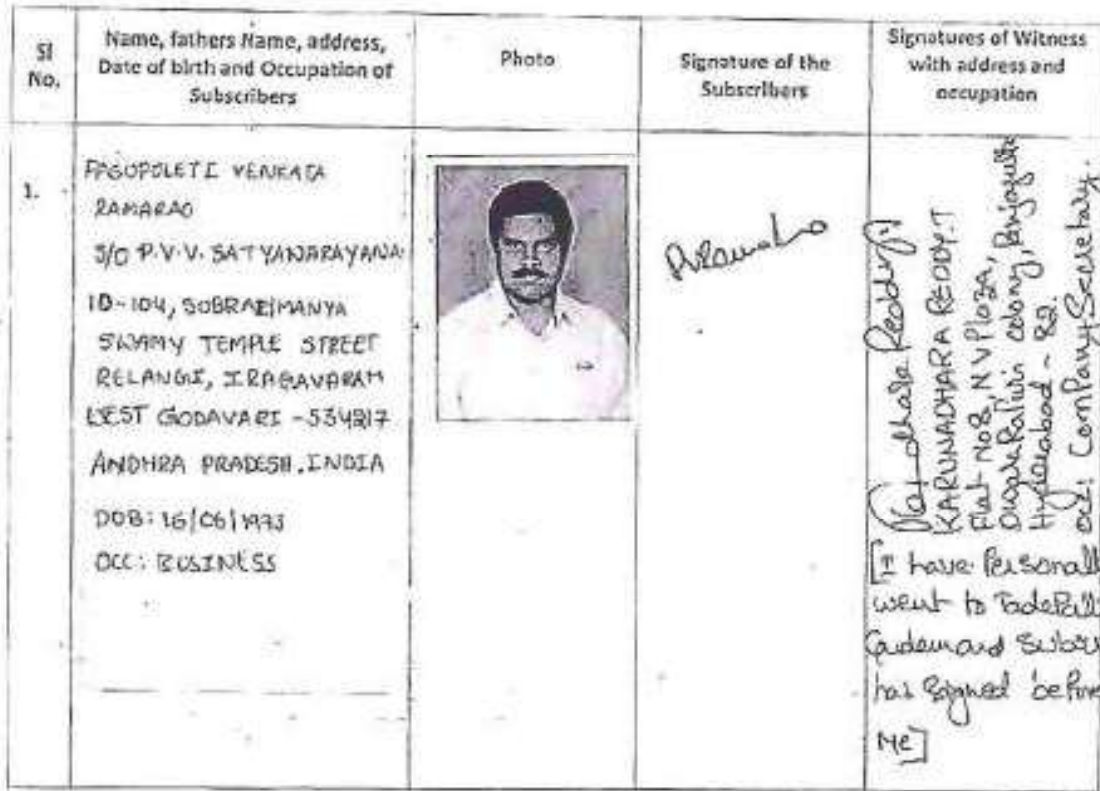 Sl No.
Name, fathers Name, address,
Date of birth and Occupation of
Subscribers
Photo
Signature of the
Subscribers
Signatures of Witness
with address and
occupation
1.
VENKATA
RAMARAO
S/O P.V.V. SATYANARAYANA
10-104, SUBRAHMANYA
SWAMY TEMPLE STREET
RELANGI, IRAGAVARAM
WEST GODAVARI -534217
ANDHRA PRADESH. INDIA
DOB: 16/06/1973
OCC: BUSINESS
KARUNADHARA REDDY.T
Flat No8, N V Plaza,
colony, Panjagutta
Hyderabad - 82.
occ: Company Secretary.
[I have Personall
went to Tadepall
has signed before
Me]